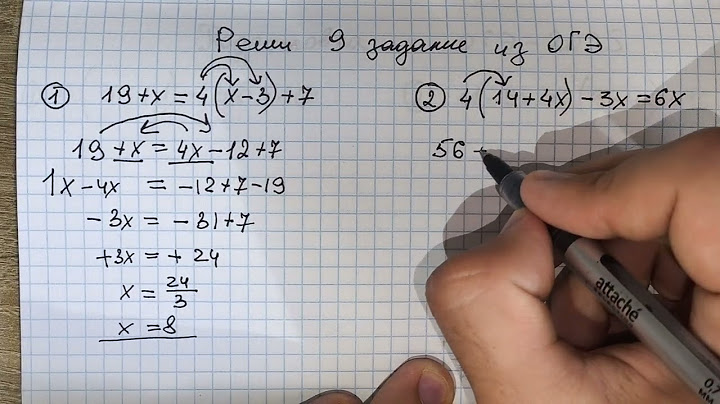 Реши 9 задание из ОГЭ
① 19+x=4(x-3)+7
19+x=4x-12+7
1x-4x=-12+7-19
-3x=-31+7
+3x=+24
x=24/3
x=8
② 4(14+4x)-3x=6x
56+
attaché
0,7
мм